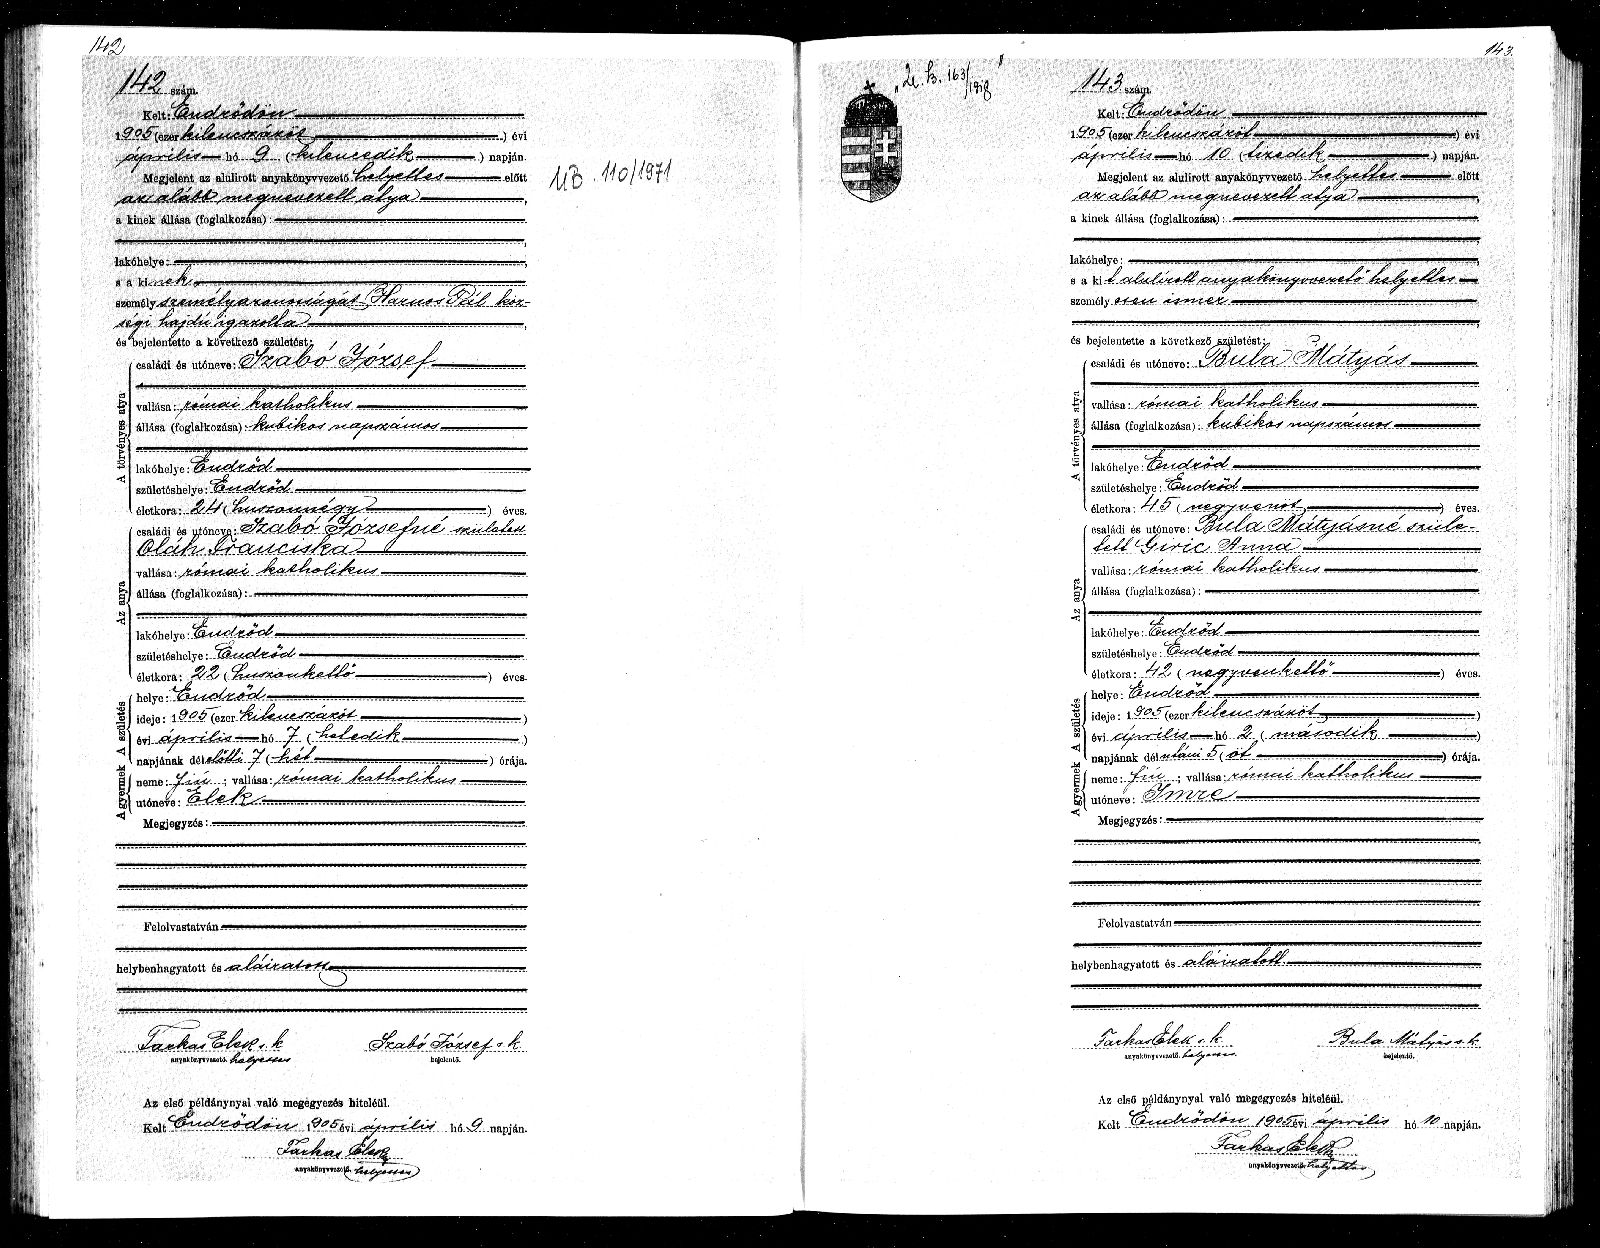 142
142 szám.
Kelt: Endrődön
1905 (ezer kilenczszázöt) évi
április hó 9 (kilenczedik) napján.
Megjelent az alulirott anyakönyvvezető helyettes előtt
az alább megnevezett atya,
a kinek állása (foglalkozása):
lakóhelye:
s a kinek
személy személyazonosságát Harnos Pál köz-
ségi hajdú igazolta
és bejelentette a következő születést:
A törvényes atya
családi és utóneve: Szabó József
vallása: római katholikus
állása (foglalkozása): kubikos napszámos
lakóhelye: Endrőd
születéshelye: Endrőd
életkora: 24 (huszonnégy) éves.
Az anya
családi és utóneve: Szabó Józsefné született
Oláh Franciska
vallása: római katholikus
állása (foglalkozása):
lakóhelye: Endrőd
születéshelye: Endrőd
életkora: 22 (huszonkettő) éves.
A születés
helye: Endrőd
ideje: 1905 (ezer kilenczszázöt)
évi április hó 7 (hetedik)
napjának délelőtti 7 (hét) órája.
A gyermek
neme: fiú; vallása: római katholikus
utóneve: Elek
Megjegyzés:
Felolvastatván
helybenhagyatott és aláiratott
Farkas Elek s. k. Szabó József s. k.
anyakönyvvezető. helyettes bejelentő.
Az első példánynyal való megegyezés hiteléül.
Kelt Endrődön 1905 évi április hó 9 napján.
Farkas Elek
anyakönyvvezető. helyettes
110/1971
143
163/1918
143 szám.
Kelt: Endrődön
1905 (ezer kilenczszázöt) évi
április hó 10 (tizedik) napján.
Megjelent az alulirott anyakönyvvezető helyettes előtt
az alább megnevezett atya,
a kinek állása (foglalkozása):
lakóhelye:
s a kit alulirott anyakönyvvezető helyettes
személyesen ismer
és bejelentette a következő születést:
A törvényes atya
családi és utóneve: Bula Mátyás
vallása: római katholikus
állása (foglalkozása): kubikos napszámos
lakóhelye: Endrőd
születéshelye: Endrőd
életkora: 45 (negyvenöt) éves.
Az anya
családi és utóneve: Bula Mátyásné szüle-
tett Giric Anna
vallása: római katholikus
állása (foglalkozása):
lakóhelye: Endrőd
születéshelye: Endrőd
életkora: 42 (negyvenkettő) éves.
A születés
helye: Endrőd
ideje: 1905 (ezer kilenczszázöt)
évi április hó 2 (második)
napjának délutáni 5 (öt) órája.
A gyermek
neme: fiú; vallása: római katholikus
utóneve: Imre
Megjegyzés:
Felolvastatván
helybenhagyatott és aláiratott
Farkas Elek s. k. Bula Mátyás s. k.
anyakönyvvezető. helyettes bejelentő.
Az első példánynyal való megegyezés hiteléül.
Kelt Endrődön 1905 évi április hó 10 napján.
Farkas Elek
anyakönyvvezető. helyettes